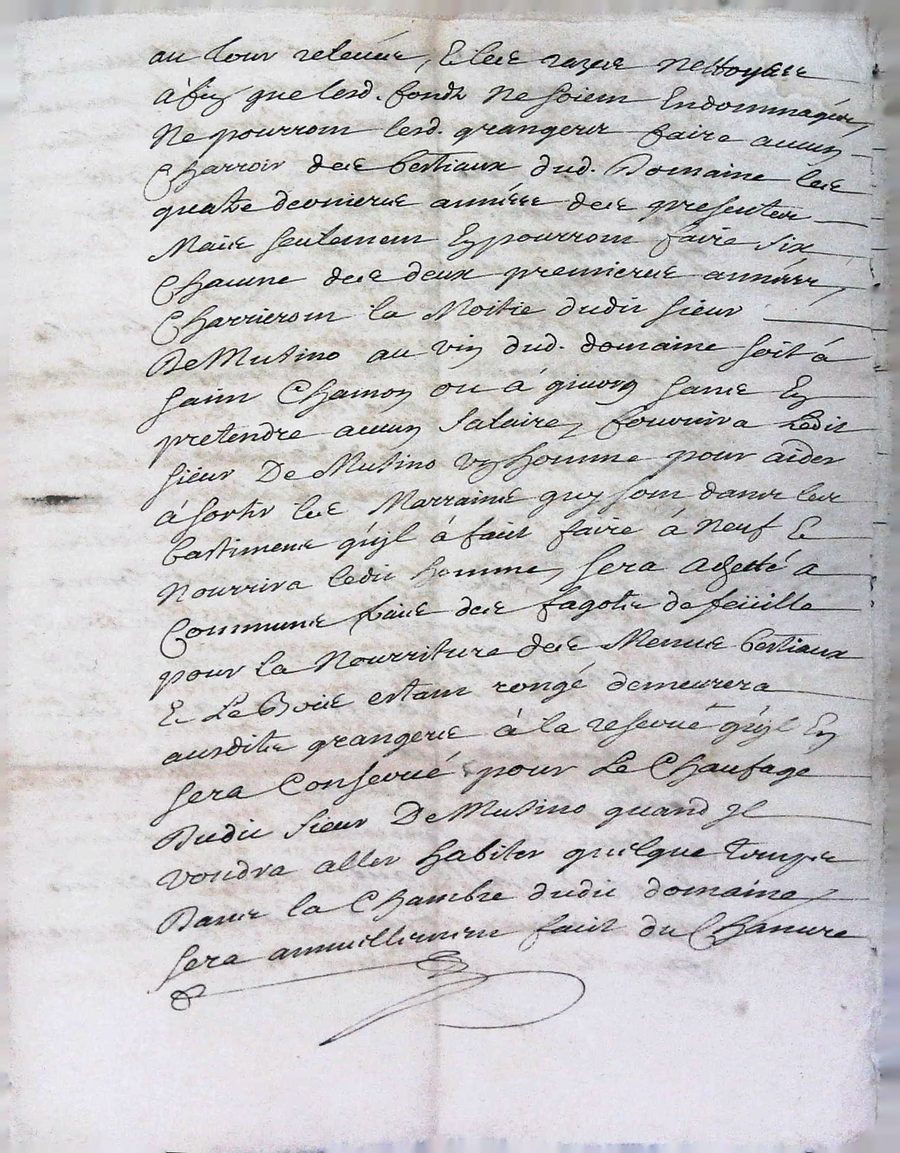 au tour relevée, Et les rases nettoyées
à fin que lesd. fonds ne soient Endommagés,
Ne pourront lesd. grangers faire aucun
Charroir des bestiaux dud. Domaine les
quatre dernieres années des presentes
Mais seulement En pourront faire six
Chacune des deux premieres années,
Charrieront la Moitie dudit sieur
De Mutino au vin dud. domaine soit à
saint Chamon ou à givors sans En
pretendre aucun salaire, fournira Ledit
sieur De Mutino un homme pour aider
à sortir les Marrains quy sont dans les
bastiments qu'jl à faut faire à neuf Et
Nourrira ledit homme, sera achetté a
Communs frais des fagots de feüille
pour la Nourriture des Menus bestiaux
Et Le Bois estant rongé demeurera
ausdits grangers à la reserve qu'jl En
sera Conservé pour Le Chaufage
Dudit sieur De Mutino quand jl
voudra aller habiter quelque temps
Dans la Chambre dudit domaine,
sera annuellement fait du Chanvre